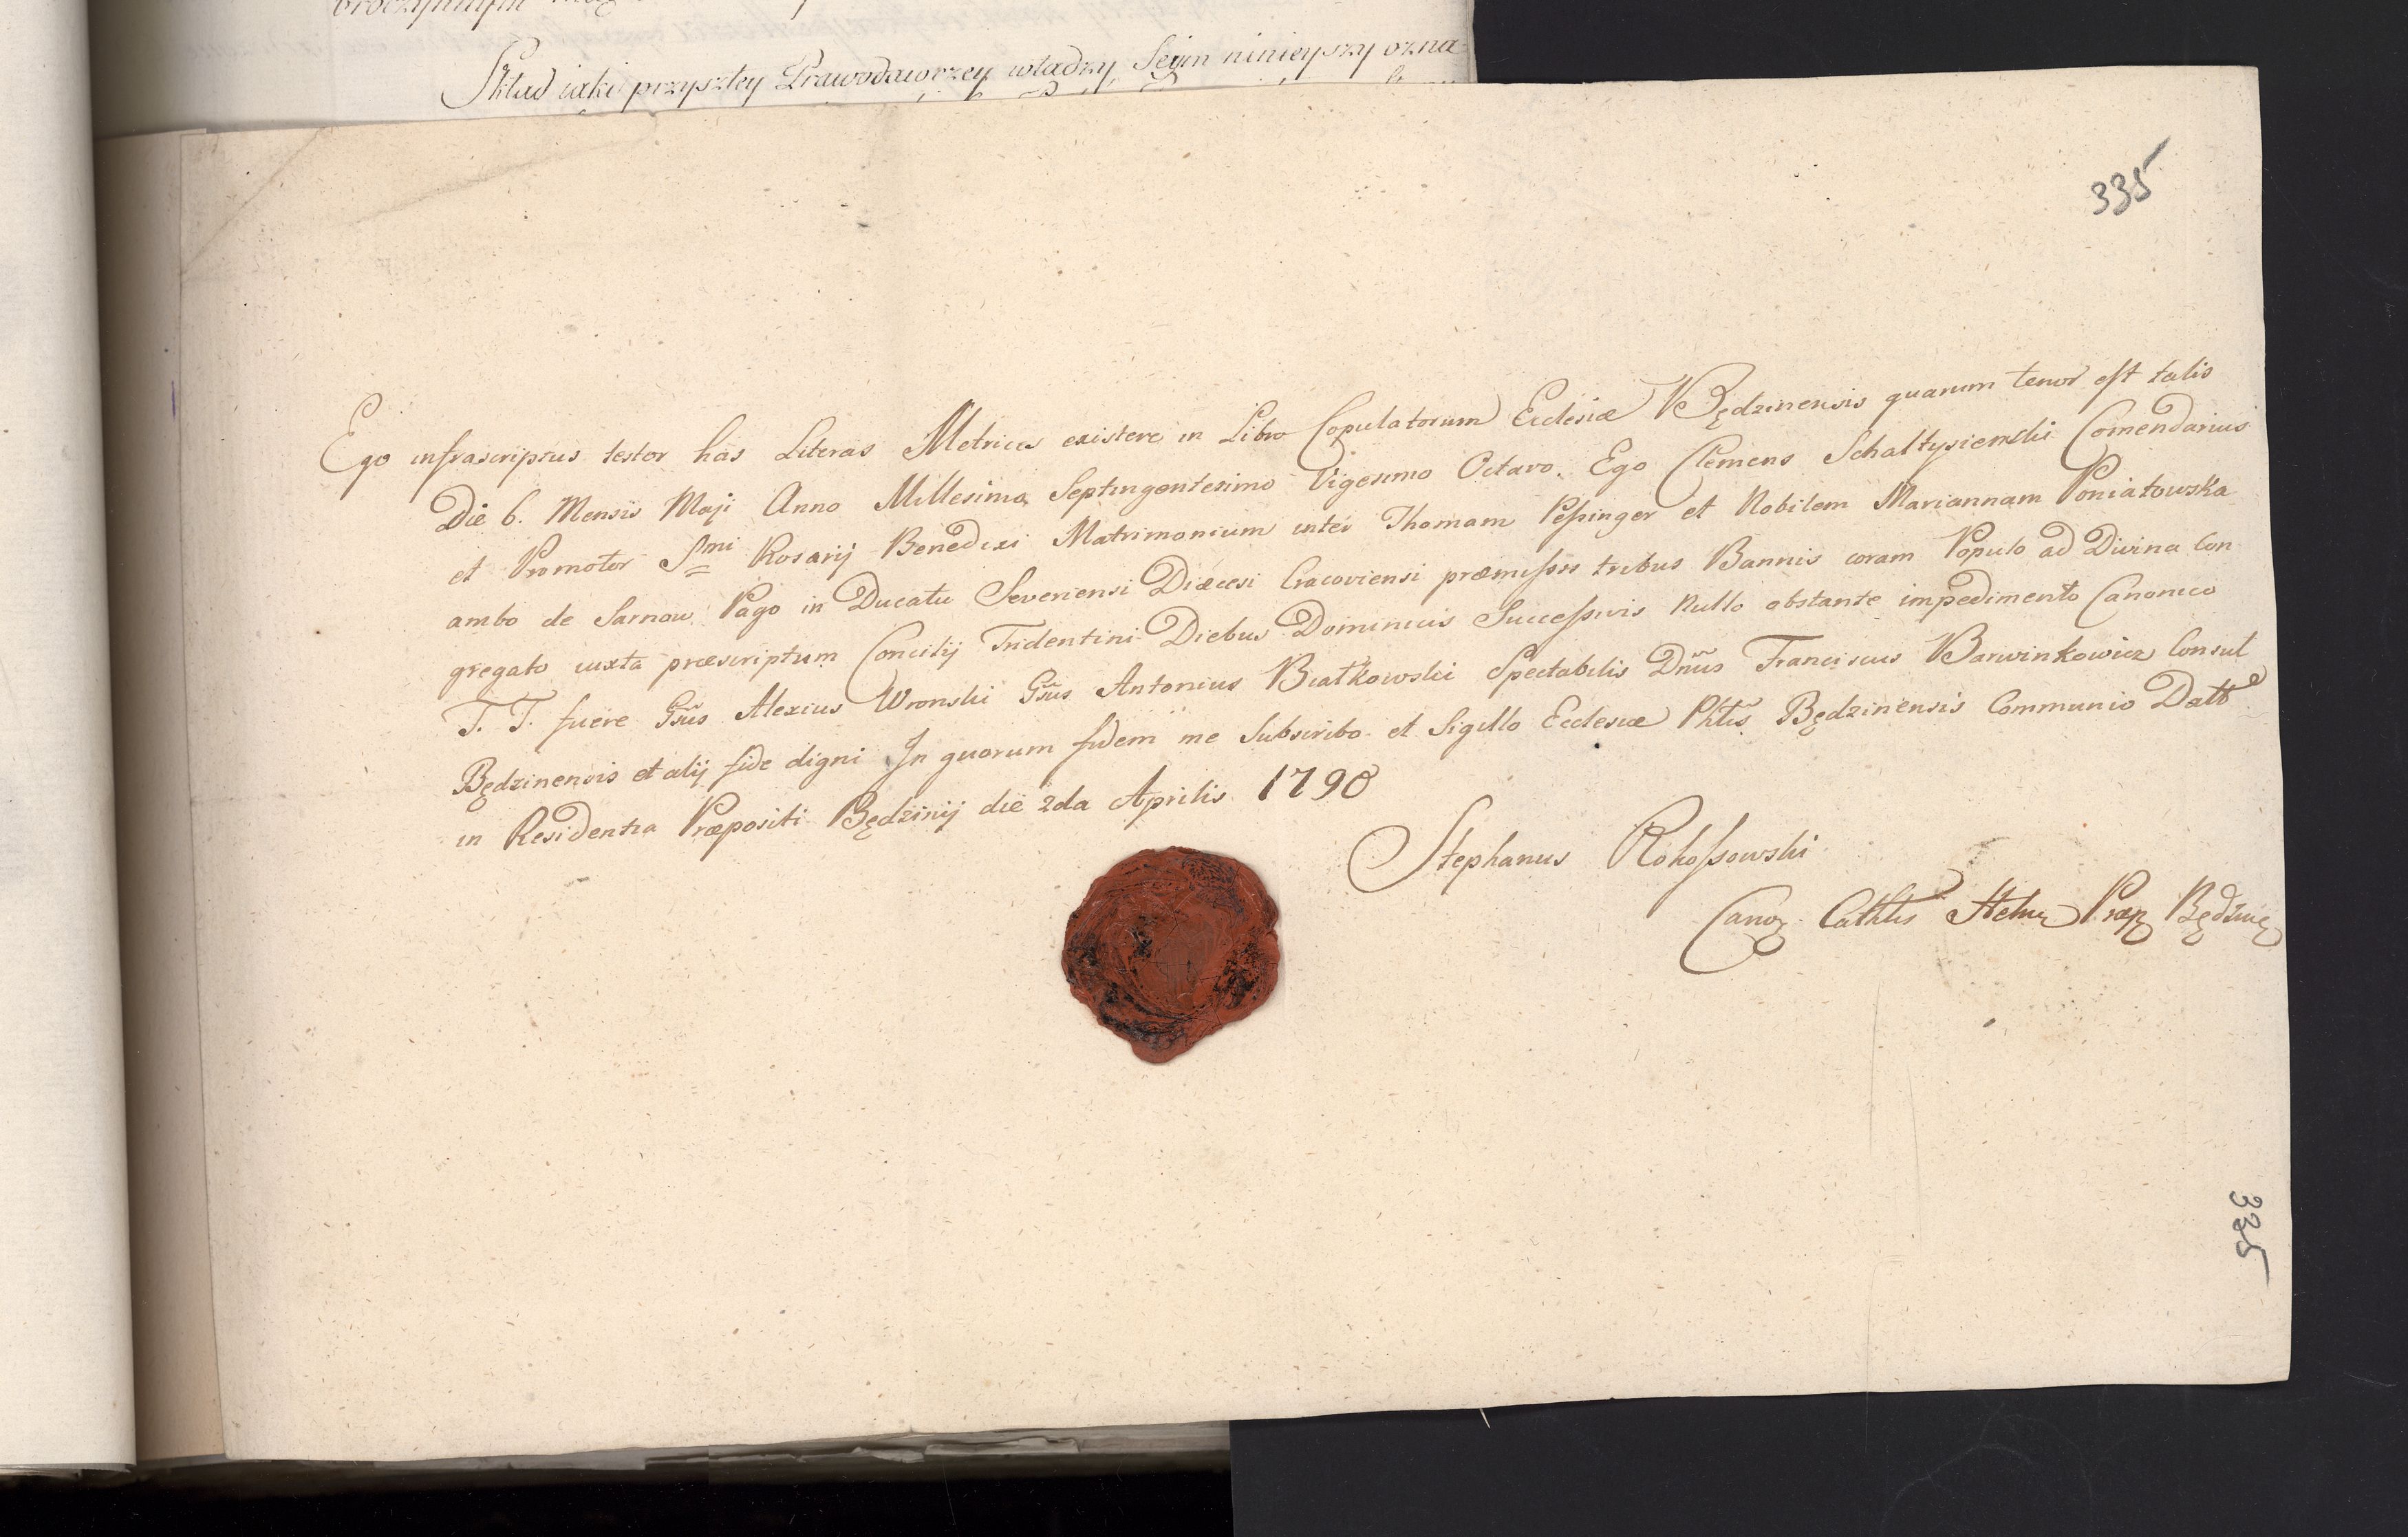 Skład iaki przyszłey Prawodawczey władzy Seym ninieyszy ozna
335
Ego infrascriptus testor has Literas Metrices existere in Libro Copulatorum Ecclesiæ Będzinensis quarum tenor est talis
Die 6. Mensis Maji Anno Millesimo Septingentesimo Vigesimo Octavo. Ego Clemens Schaltysienski Comendarius
et Promotor Smi Rosarij Benedixi Matrimonium inter Thomam Peßinger et Nobilem Mariannam Poniatowska
ambo de Sarnow Pago in Ducatu Severiensi Diæcesi Cracoviensi præmißis tribus Bannis coram Populo ad Divina Con
gregato iuxta præscriptum Concilij Tridentini Diebus Dominicis Succeßivis Nullo obstante impedimento Canonico
T. T. fuere Gsus Alexius Wronski Gsus Antonius Białkowski Spectabilis Dnus Franciscus Barwinkowicz Consul
Będzinensis et alij fide digni In quorum fidem me Subscribo et Sigillo Ecclesiæ Phlis Będzinensis Communio Datt
in Residentia Præpositi Będzinij die 2da Aprilis 1790
Stephanus Rokoßowski
Cano Cathlis Præp Będzin
335